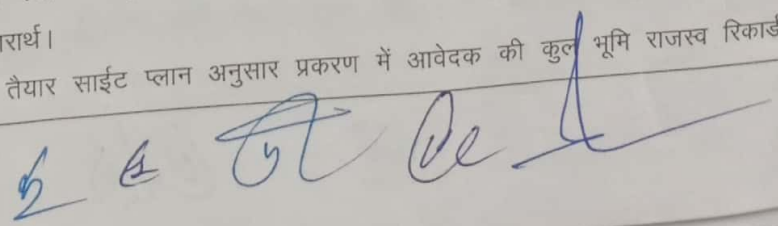 रार्थ।
तैयार साईट प्लान अनुसार प्रकरण में आवेदक की कुल भूमि राजस्व रिकार्ड